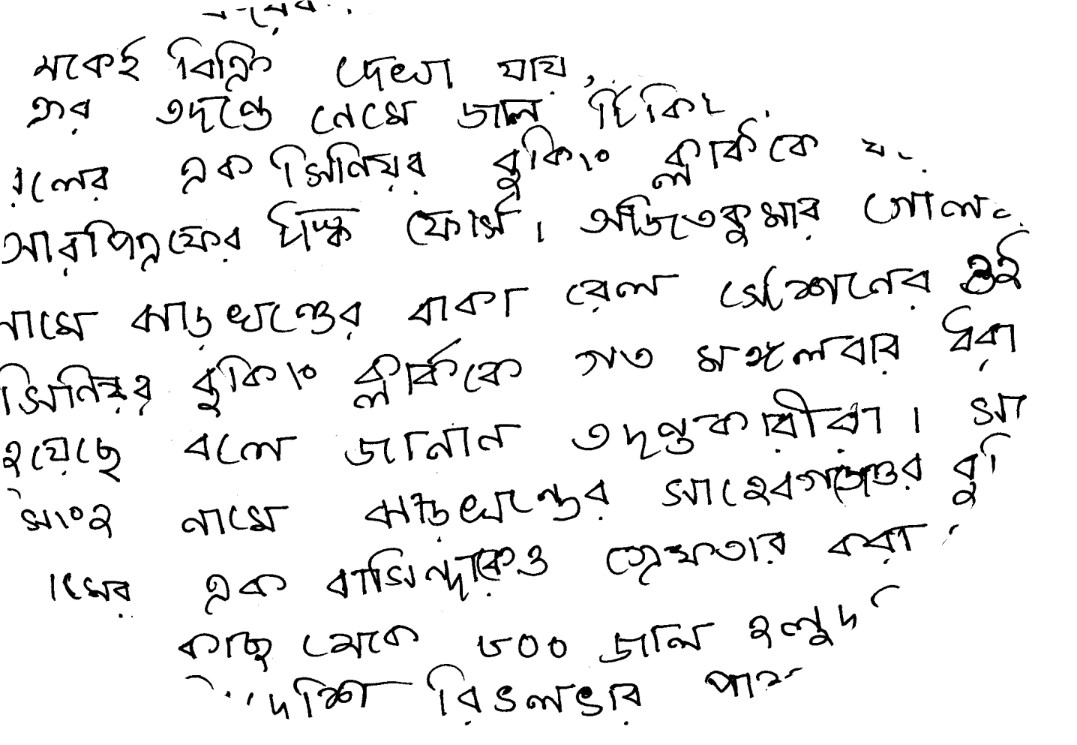 মকেই বিভ্রিং দেখা যায়,
এর তদন্তে নেমে জাল টিকিট
রেলের এক সিনিয়র বুকিং ক্লার্ককে
আরপিএফের টাস্ক ফোর্স। অজিতকুমার
নামে ঝাড়খণ্ডের বাকা রেল স্টেশনের ওই
সিনিয়র বুকিং ক্লার্ককে গত মঙ্গলবার ধরা
হয়েছে বলে জানান তদন্তকারীরা।
নামে ঝাড়খন্ডের সাহেবগঞ্জের
এক বাসিন্দাকেও গ্রেফতার করা
কাছ থেকে ৮০০ জাল
রিভলভার